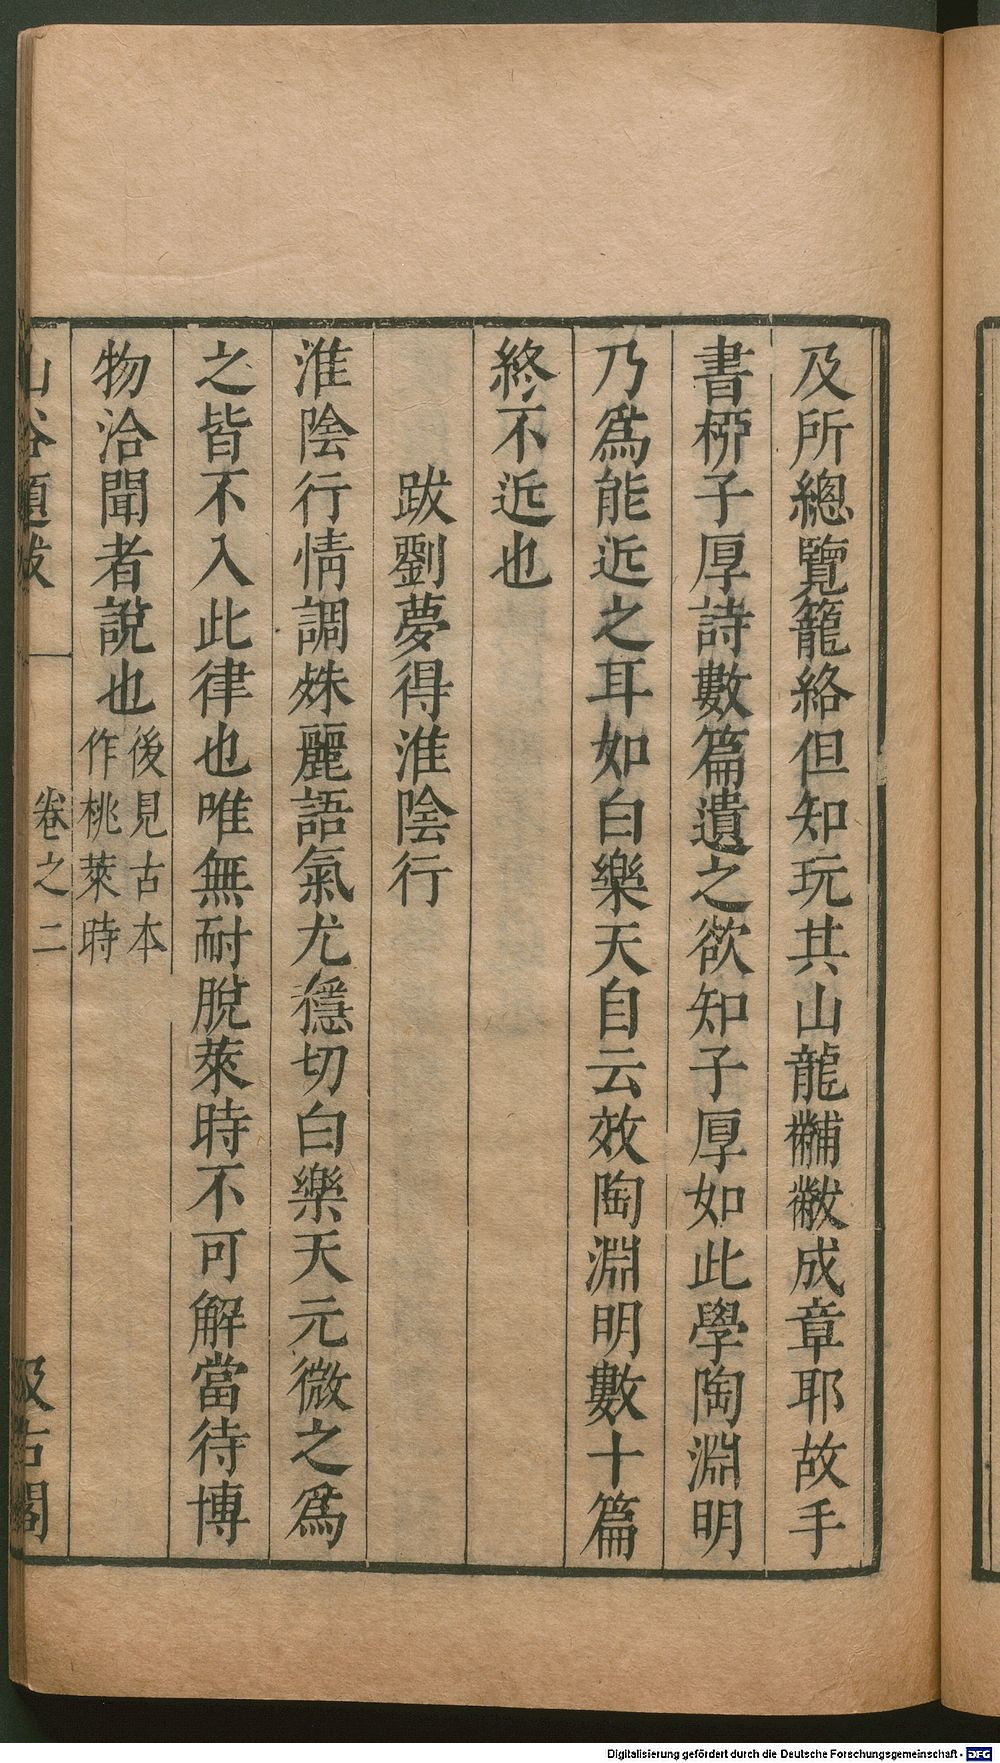 及所總覽籠絡但知玩其山龍黼黻成章耶故手
書栁子厚詩數篇遺之欲知子厚如此學陶淵明
乃爲能近之耳如白樂天自云效陶淵明數十篇
終不近也
跋劉夢得淮陰行
淮陰行情調殊麗語氣尤穩切白樂天元微之爲
之皆不入此律也唯無耐脫萊時不可解當待博
物洽聞者說也
後見古本
作桃萊時
山谷題跋
卷之二
汲古閣
Digitalisierung gefördert durch die Deutsche Forschungsgemeinschaft - DFG